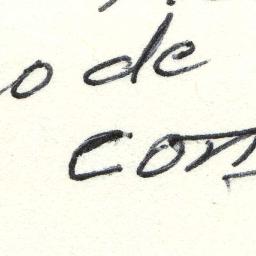 o de
con